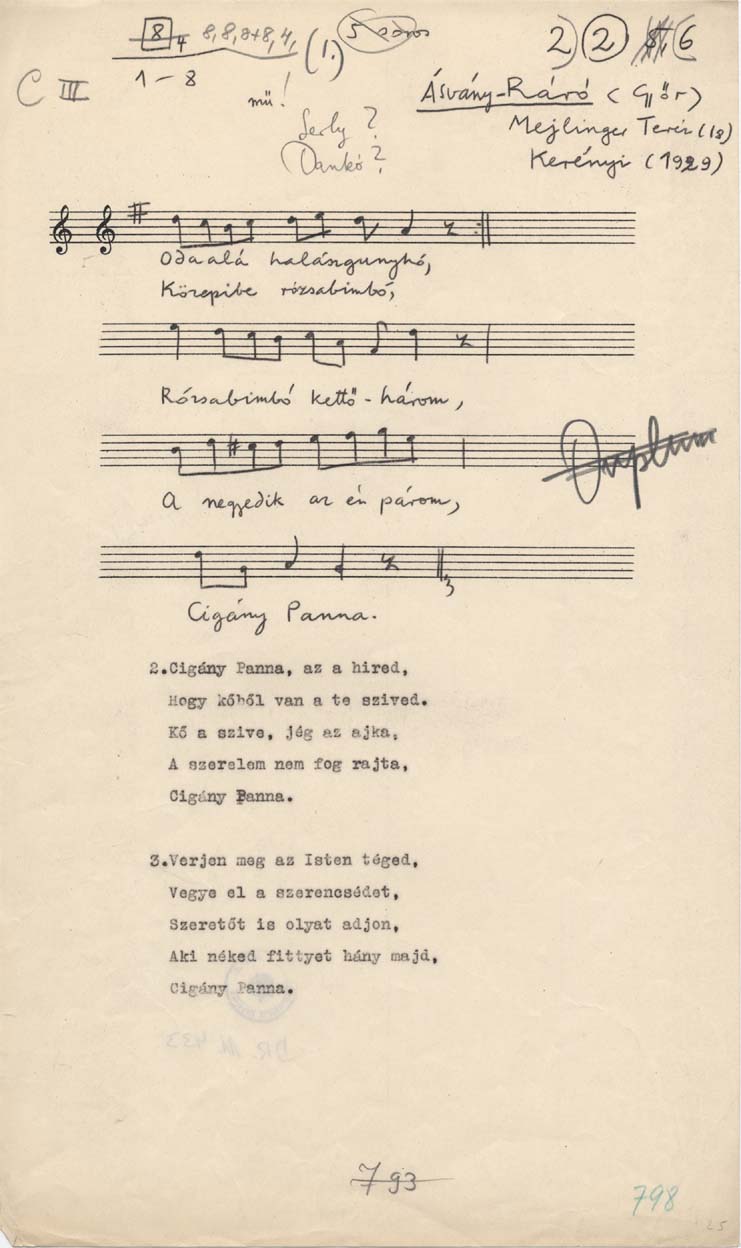 8 4 8,8,8+8,4, (1.) 5 soros
2) 2) 6
C III
1-8
mű!
Serly?
Dankó?
Ásvány-Ráró (Győr)
Mejlinger Teréz (18)
Kerényi (1929)
Oda alá halászgunyhó,
Közepibe rózsabimbó,
Rózsabimbó kettő-három,
A negyedik az én párom,
Duplum
Cigány Panna.
2.Cigány Panna, az a hired,
Hogy kőből van a te szived.
Kő a szive, jég az ajka,
A szerelem nem fog rajta,
Cigány Panna.
3.Verjen meg az Isten téged,
Vegye el a szerencsédet,
Szeretőt is olyat adjon,
Aki néked fittyet hány majd,
Cigány Panna.
793
798
25